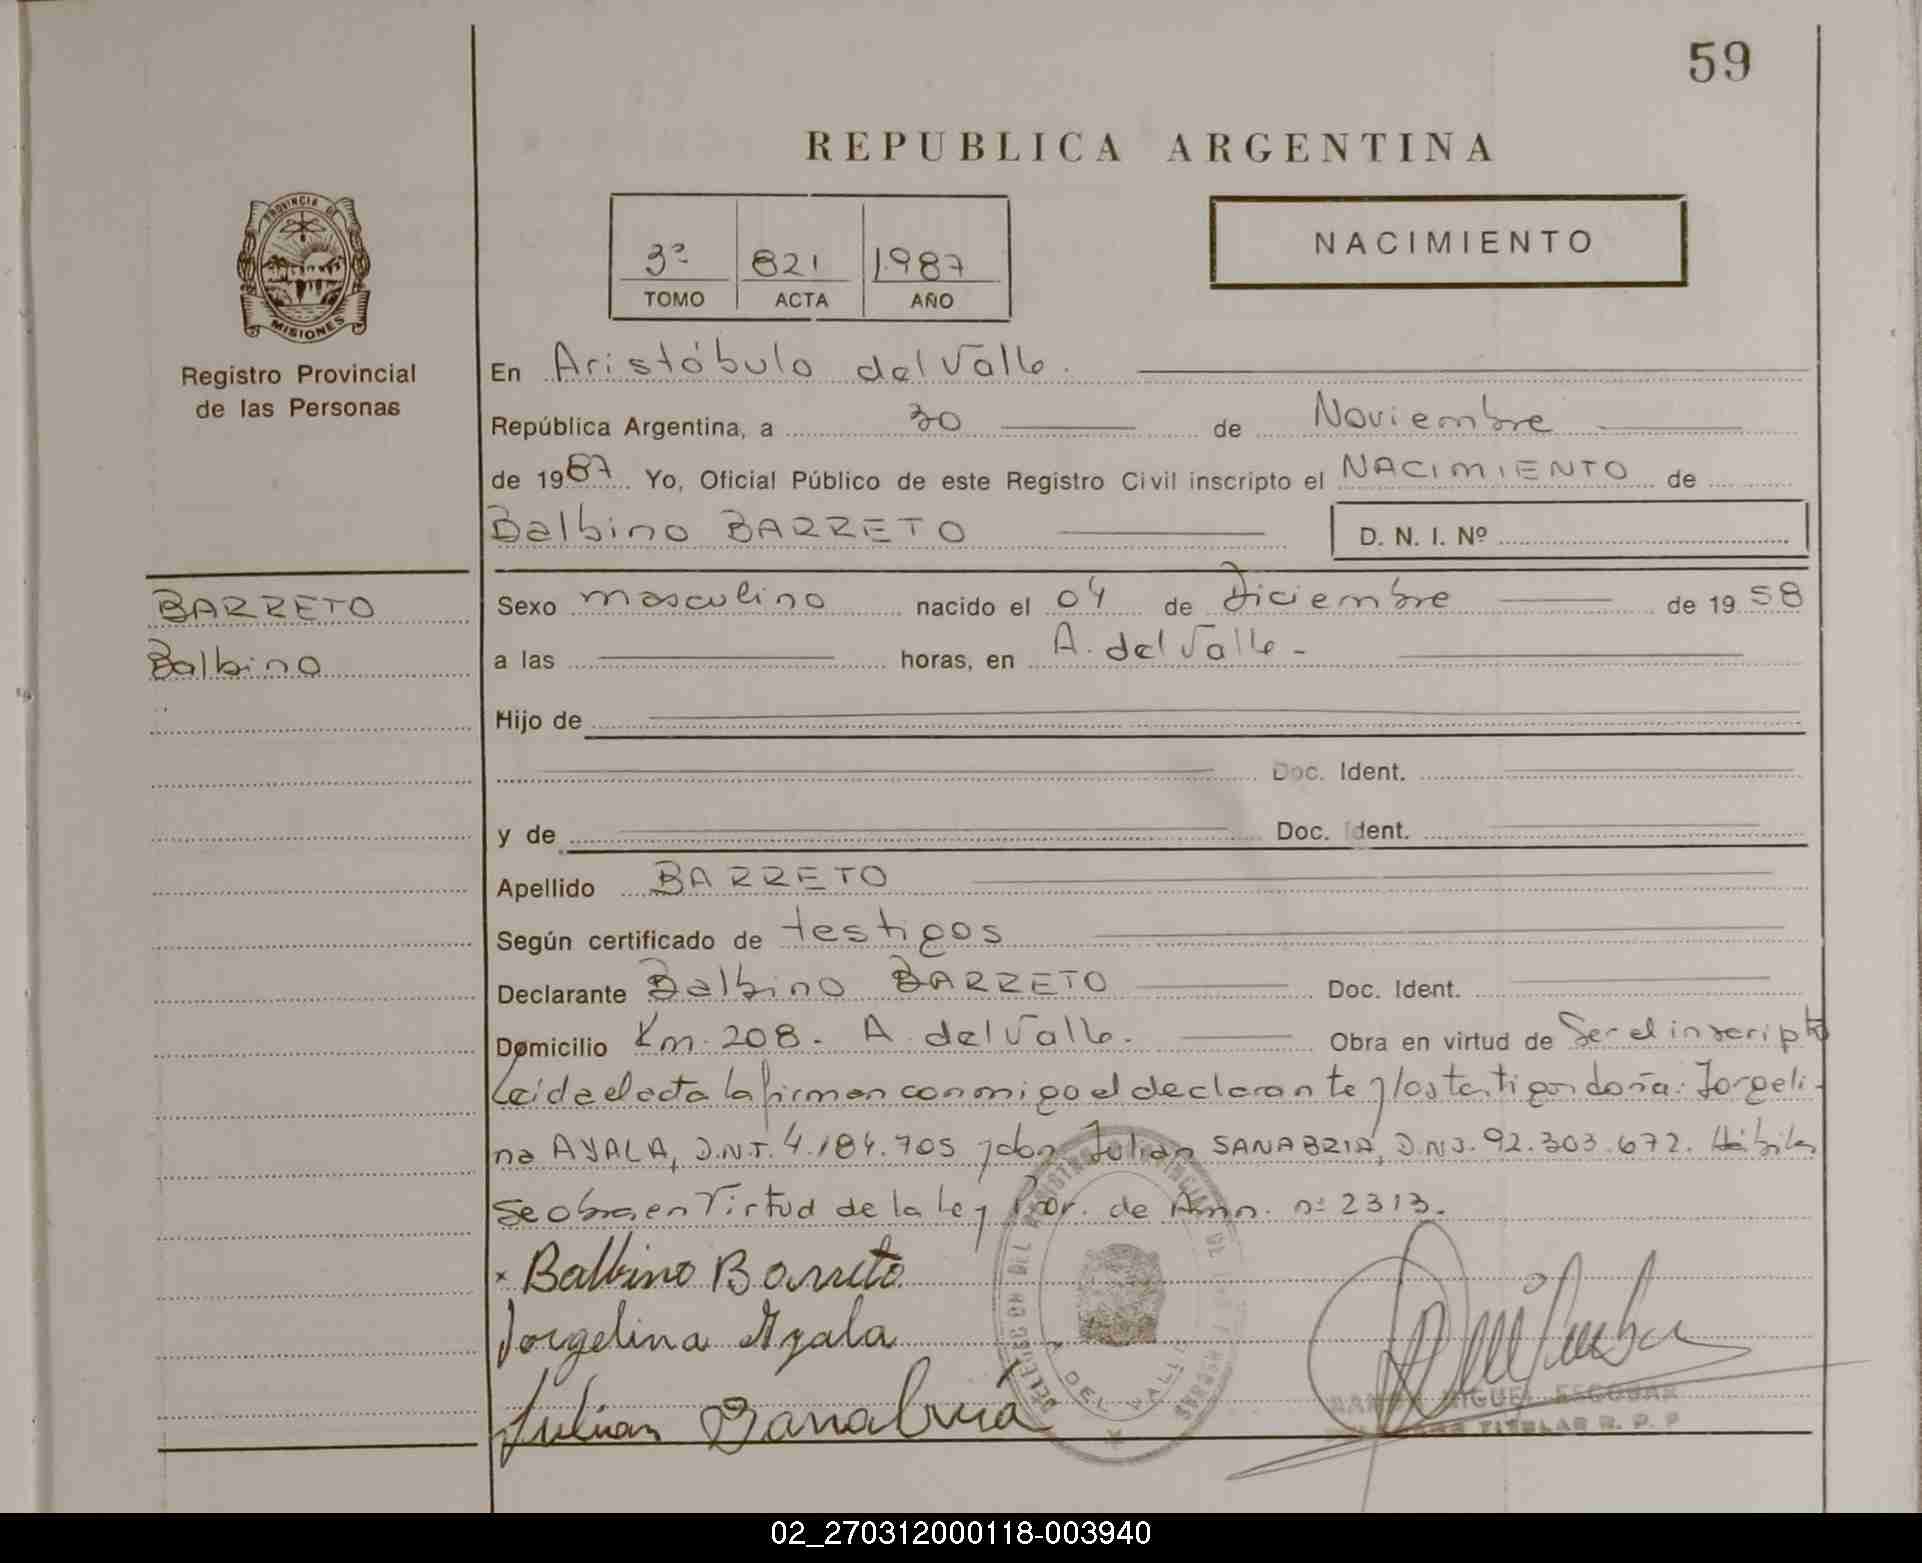 59
REPUBLICA ARGENTINA
PROVINCIA DE
MISIONES
Registro Provincial
de las Personas
3º 821 1.987
TOMO ACTA AÑO
NACIMIENTO
En Aristóbulo del Valle.
República Argentina, a 30 de Noviembre
de 1987 Yo, Oficial Público de este Registro Civil inscripto el NACIMIENTO de
Balbino BARRETO D. N. I. Nº
BARRETO
Balbino
Sexo masculino nacido el 04 de Diciembre de 1958
a las horas, en A. del Valle -
Hijo de
Doc. Ident.
y de Doc. Ident.
Apellido BARRETO
Según certificado de testigos
Declarante Balbino BARRETO Doc. Ident.
Domicilio Km. 208. A. del Valle. Obra en virtud de Ser el inscripto
Leida el acta la firman conmigo el declarante y los testigos doña: Jorgeli-
na AYALA, D.N.I. 4.184.705 y don Julian SANABRIA, D.N.I. 92.303.672. Hábiles
se obra en Virtud de la Ley Por. de Amn. nº 2313.
x Balbino Barreto
Jorgelina Ayala
Julian Sanabria
DEL VALLE
MIGUEL ESCOBAR
TITULAR R. P. P
02_270312000118-003940